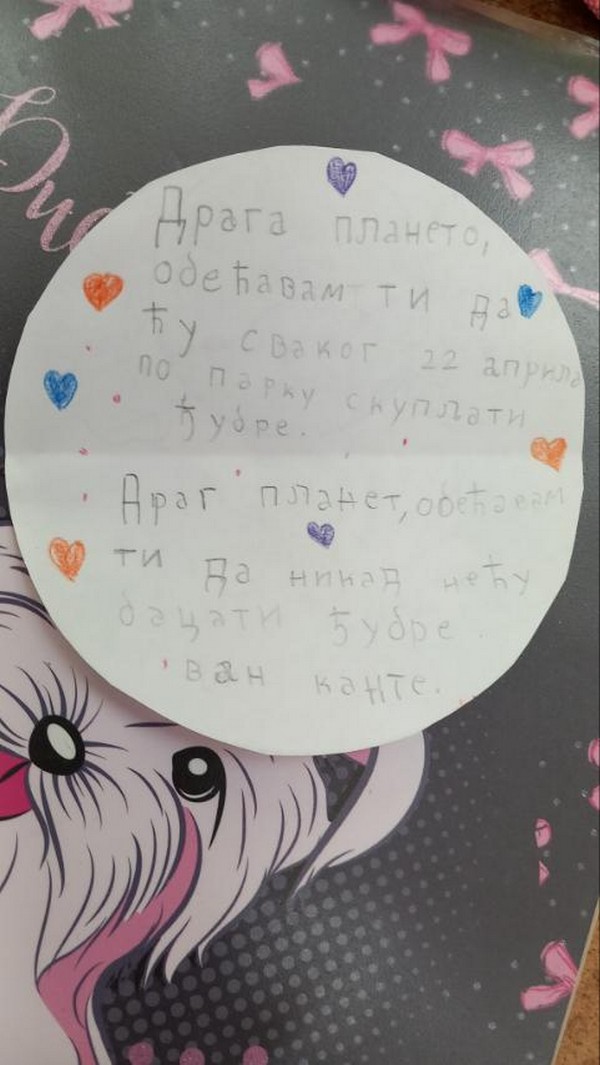 Драга плането,
обећавам ти да
ћу сваког 22 априла
по парку скупљати
ђубре.
Драг планет, обећавам
ти да никад нећу
бацати ђубре.
ван канте.